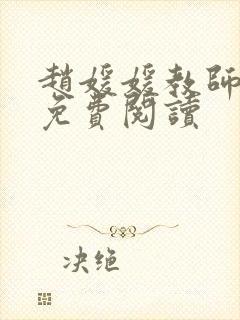 趙媛媛教師
免費閱讀
决绝